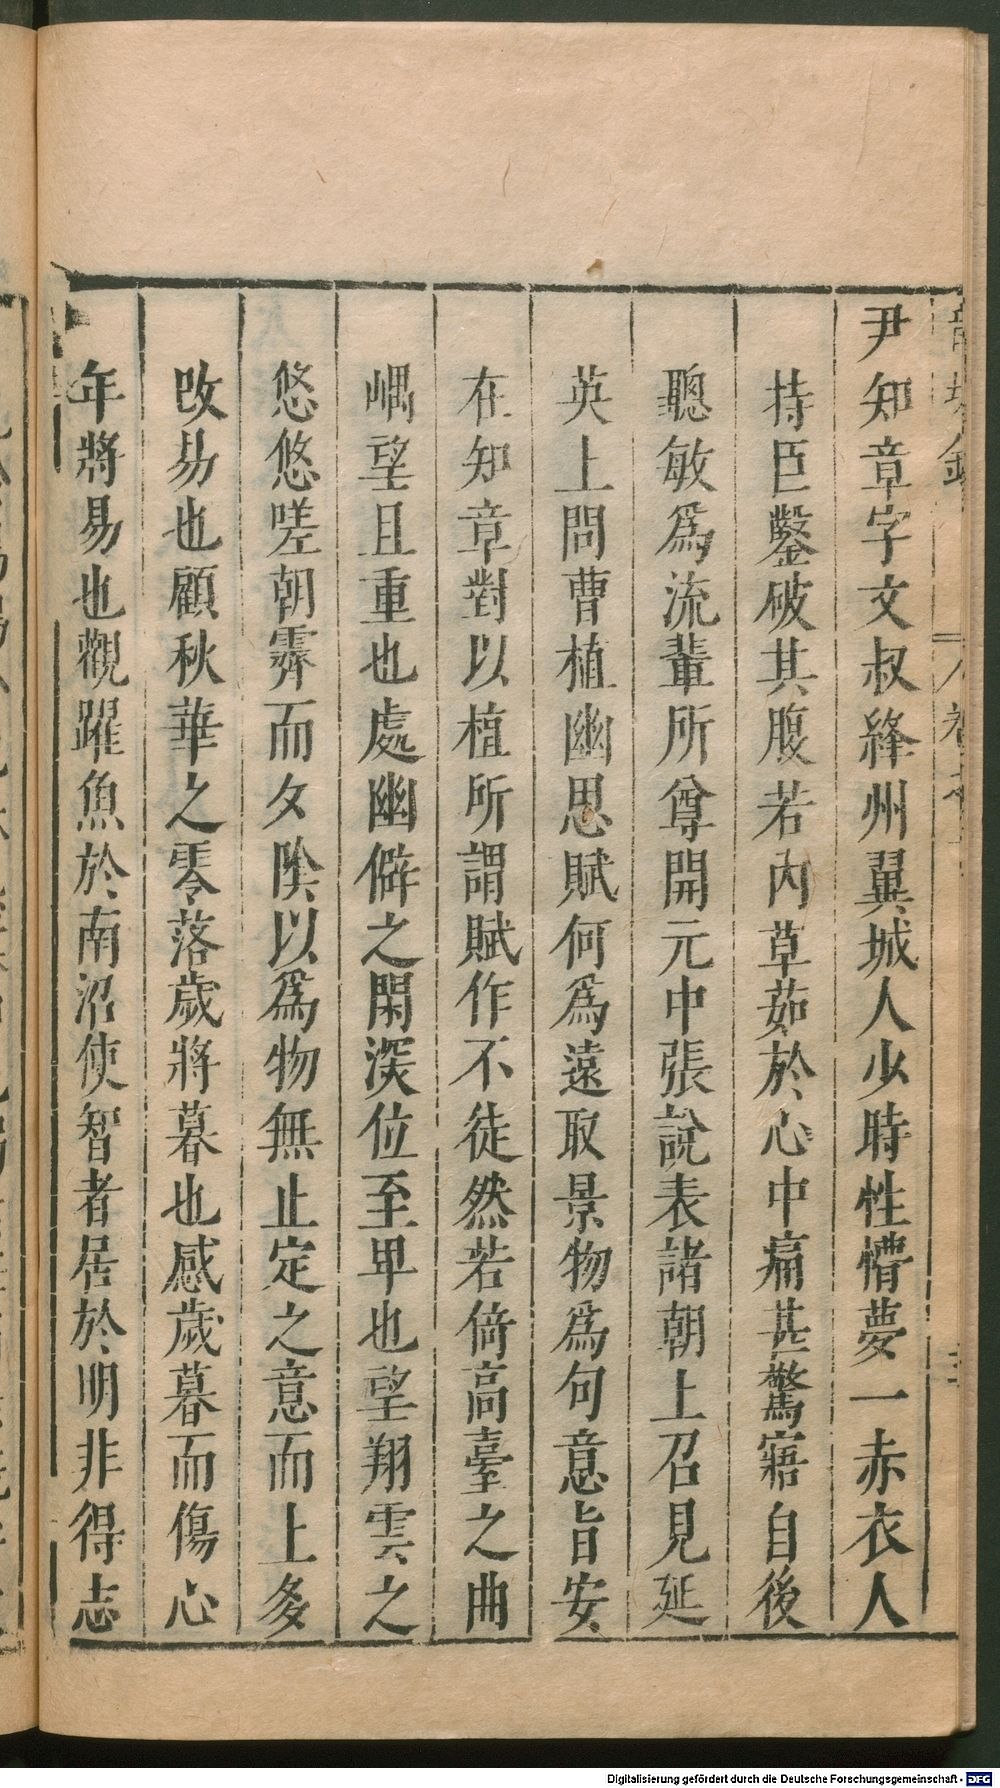 尹知章字文叔絳州翼城人少時性懵夢一赤衣人
持巨鑿破其腹若內草茹於心中痛甚驚寤自後
聰敏爲流輩所尊開元中張說表諸朝上召見延
英上問曹植幽思賦何爲遠取景物爲句意旨安
在知章對以植所謂賦作不徒然若倚高臺之曲
嵎望且重也處幽僻之閑深位至卑也望翔雲之
悠悠嗟朝霽而夕陰以爲物無止定之意而上多
改易也顧秋華之零落歲將暮也感歲暮而傷心
年將易也觀躍魚於南沼使智者居於明非得志
Digitalisierung gefördert durch die Deutsche Forschungsgemeinschaft - DFG